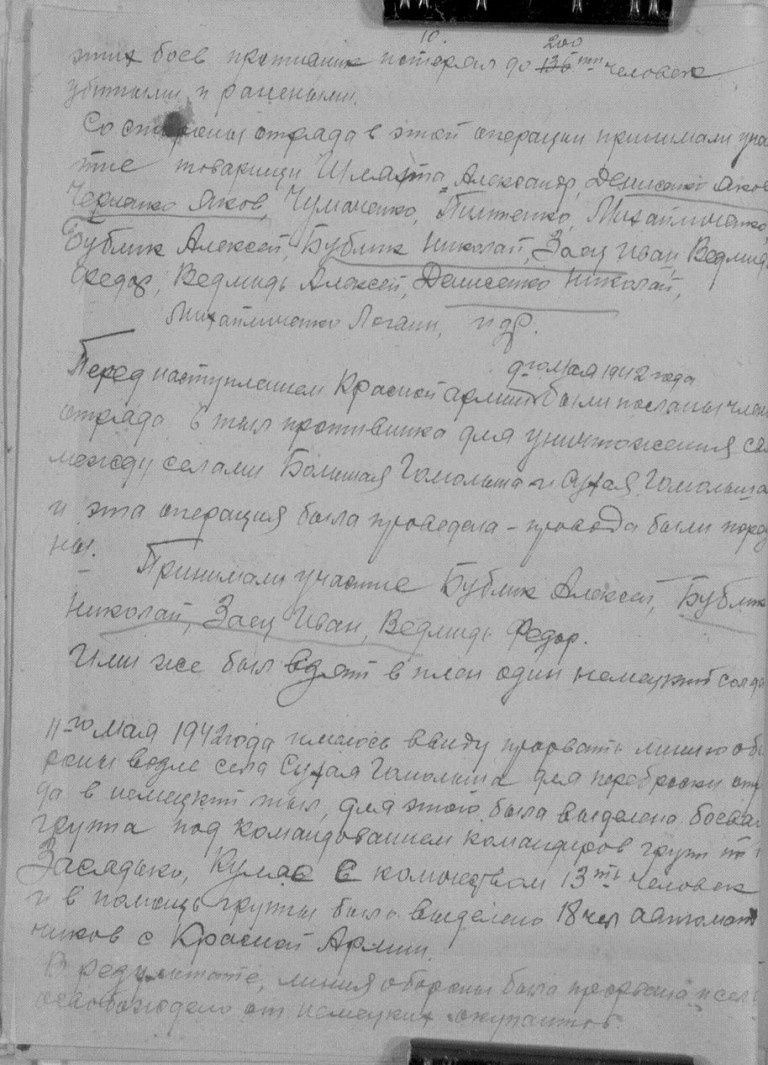 10.
этих боев противник потерял до 136 200 тп человек
убитыми и ранеными.
Со стороны отряда в этой операции принимали уча
тие товарищи Шляхта Александр, Денисенко Яков
Черненко Яков, Чумаченко, Питненко, Михайличенко,
Бублик Алексей, Бублик Николай, Заец Иван, Ведмидь
Федор, Ведмидь Алексей, Денисенко Николай,
Михайличенко Логвин, и др.
9-го мая 1942 года
Перед наступлением Красной армии были посланы член
отряда в тыл противника для уничтожения свя
между селами Большая Гомольша и Сухая Гомольша
и эта операция была проведена - провода были порва
ны. Принимали участие Бублик Алексей, Бублик
Николай, Заец Иван, Ведмидь Федор.
Ими же был взят в плен один немецкий солда
11-го мая 1942 года имелось ввиду прорвать линию обо
роны возле села Сухая Гомольша для переброски отря
да в немецкий тыл, для этого была выделена боевая
группа под командованием командиров групп тт
Засядько, Кулак в количестве 13ть человек
и в помощь группы было выделено 18 чел автомат
чиков с Красной Армии.
В результате, линия обороны была прорвана и село
освобождено от немецких окупантов.